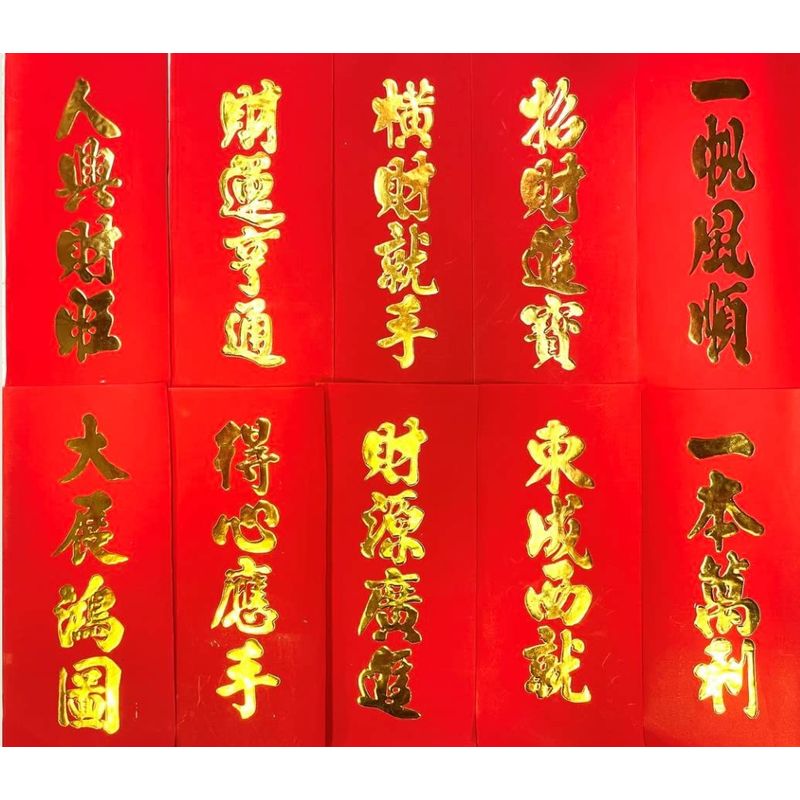 人興財旺
財運亨通
橫財就手
招財進寶
一帆風順
大展鴻圖
得心應手
財源廣進
東成西就
一本萬利